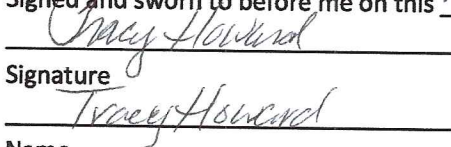 Signed and sworn to before me on this
Tracy Howard
Signature
Tracy Howard
Name